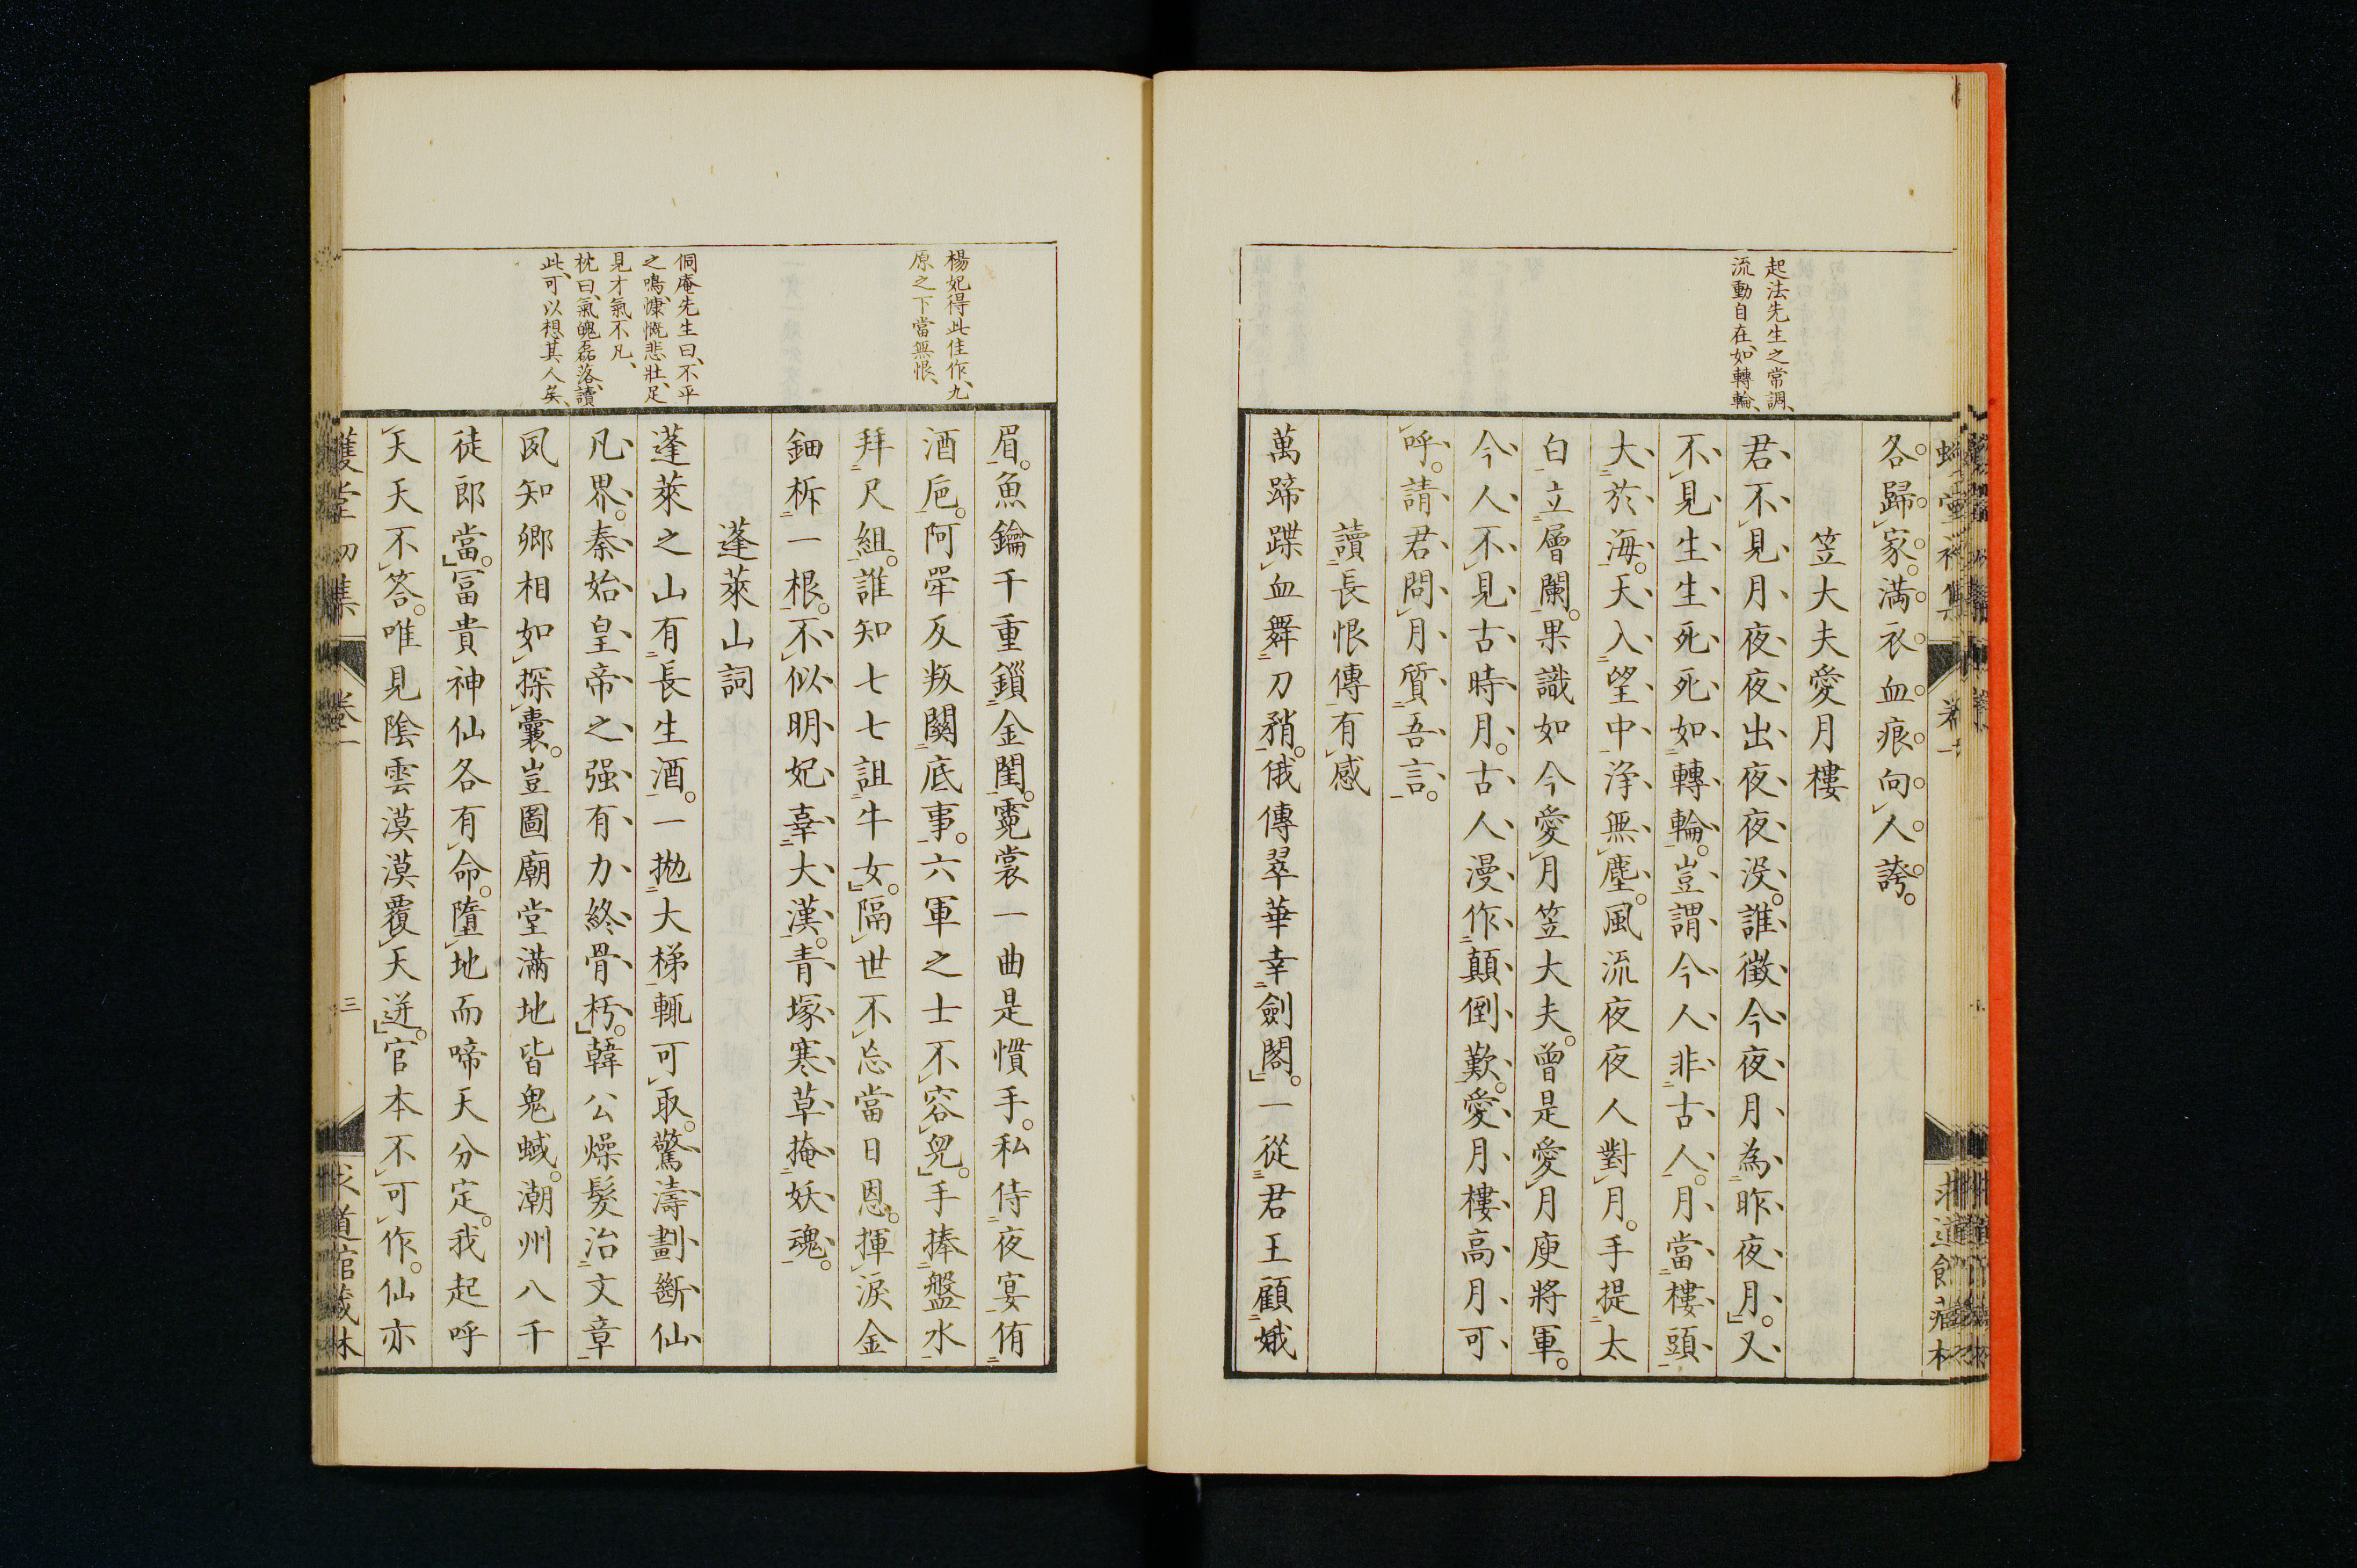 起法先生之常調、
流動自在、如轉輪、
各歸家。満衣血痕向人誇。
笠大夫愛月樓
君不見月夜夜出夜夜没。誰徴今夜月為昨夜月。又
不見生生死死如轉輪。豈謂今人非古人。月當樓頭
大於海。天入望中浄無塵。風流夜夜人對月。手提太
白立層闌。果識如今愛月笠大夫。曾是愛月庾將軍。
今人不見古時月。古人漫作顛倒歎。愛月樓高月可
呼。請君問月質吾言。
讀長恨傳有感
萬蹄蹀血舞刀矟。俄傳翠華幸劍閣。一從君王顧娥
楊妃得此佳作、九
原之下當無恨、
侗庵先生曰、不平
之鳴、慷慨悲壯、足
見才氣不凡、
枕曰、氣魄磊落、讀
此、可以想其人矣、
眉。魚鑰千重鎖金閨。霓裳一曲是慣手。私侍夜宴侑
酒巵。阿犖反叛關底事。六軍之士不容皃。手捧盤水
拜尺組。誰知七七詛牛女。隔世不忘當日恩。揮淚金
鈿柝一根。不似明妃辜大漢。青塚寒草掩妖魂。
蓬萊山詞
蓬萊之山有長生酒。一拋大梯輒可取。驚濤劃斷仙
凡界。秦始皇帝之强有力終骨朽。韓公燥髮治文章
夙知卿相如探囊。豈圖廟堂滿地皆鬼蜮。潮州八千
徒郎當。冨貴神仙各有命。墮地而啼天分定。我起呼
天天不答。唯見陰雲漠漠覆天迸。官本不可作。仙亦
堂初集
卷一
三
道館藏